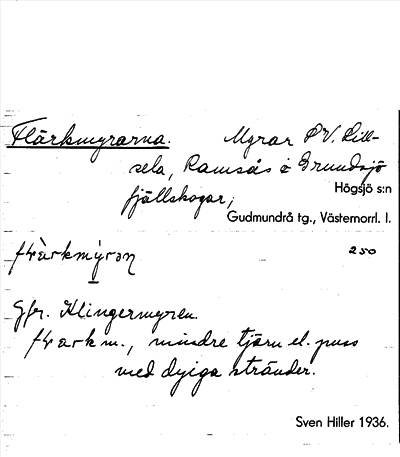 Flärkmyrarna. Myrar P V. Lill-
sela, Ramsås o Grundsjö
Högsjö s:n
fjällskogar;
Gudmundrå tg., Västernorrl. l.
250
Jfr. Klingermyren.
m., mindre tjärn el. puss
med dyiga stränder.
Sven Hiller 1936.